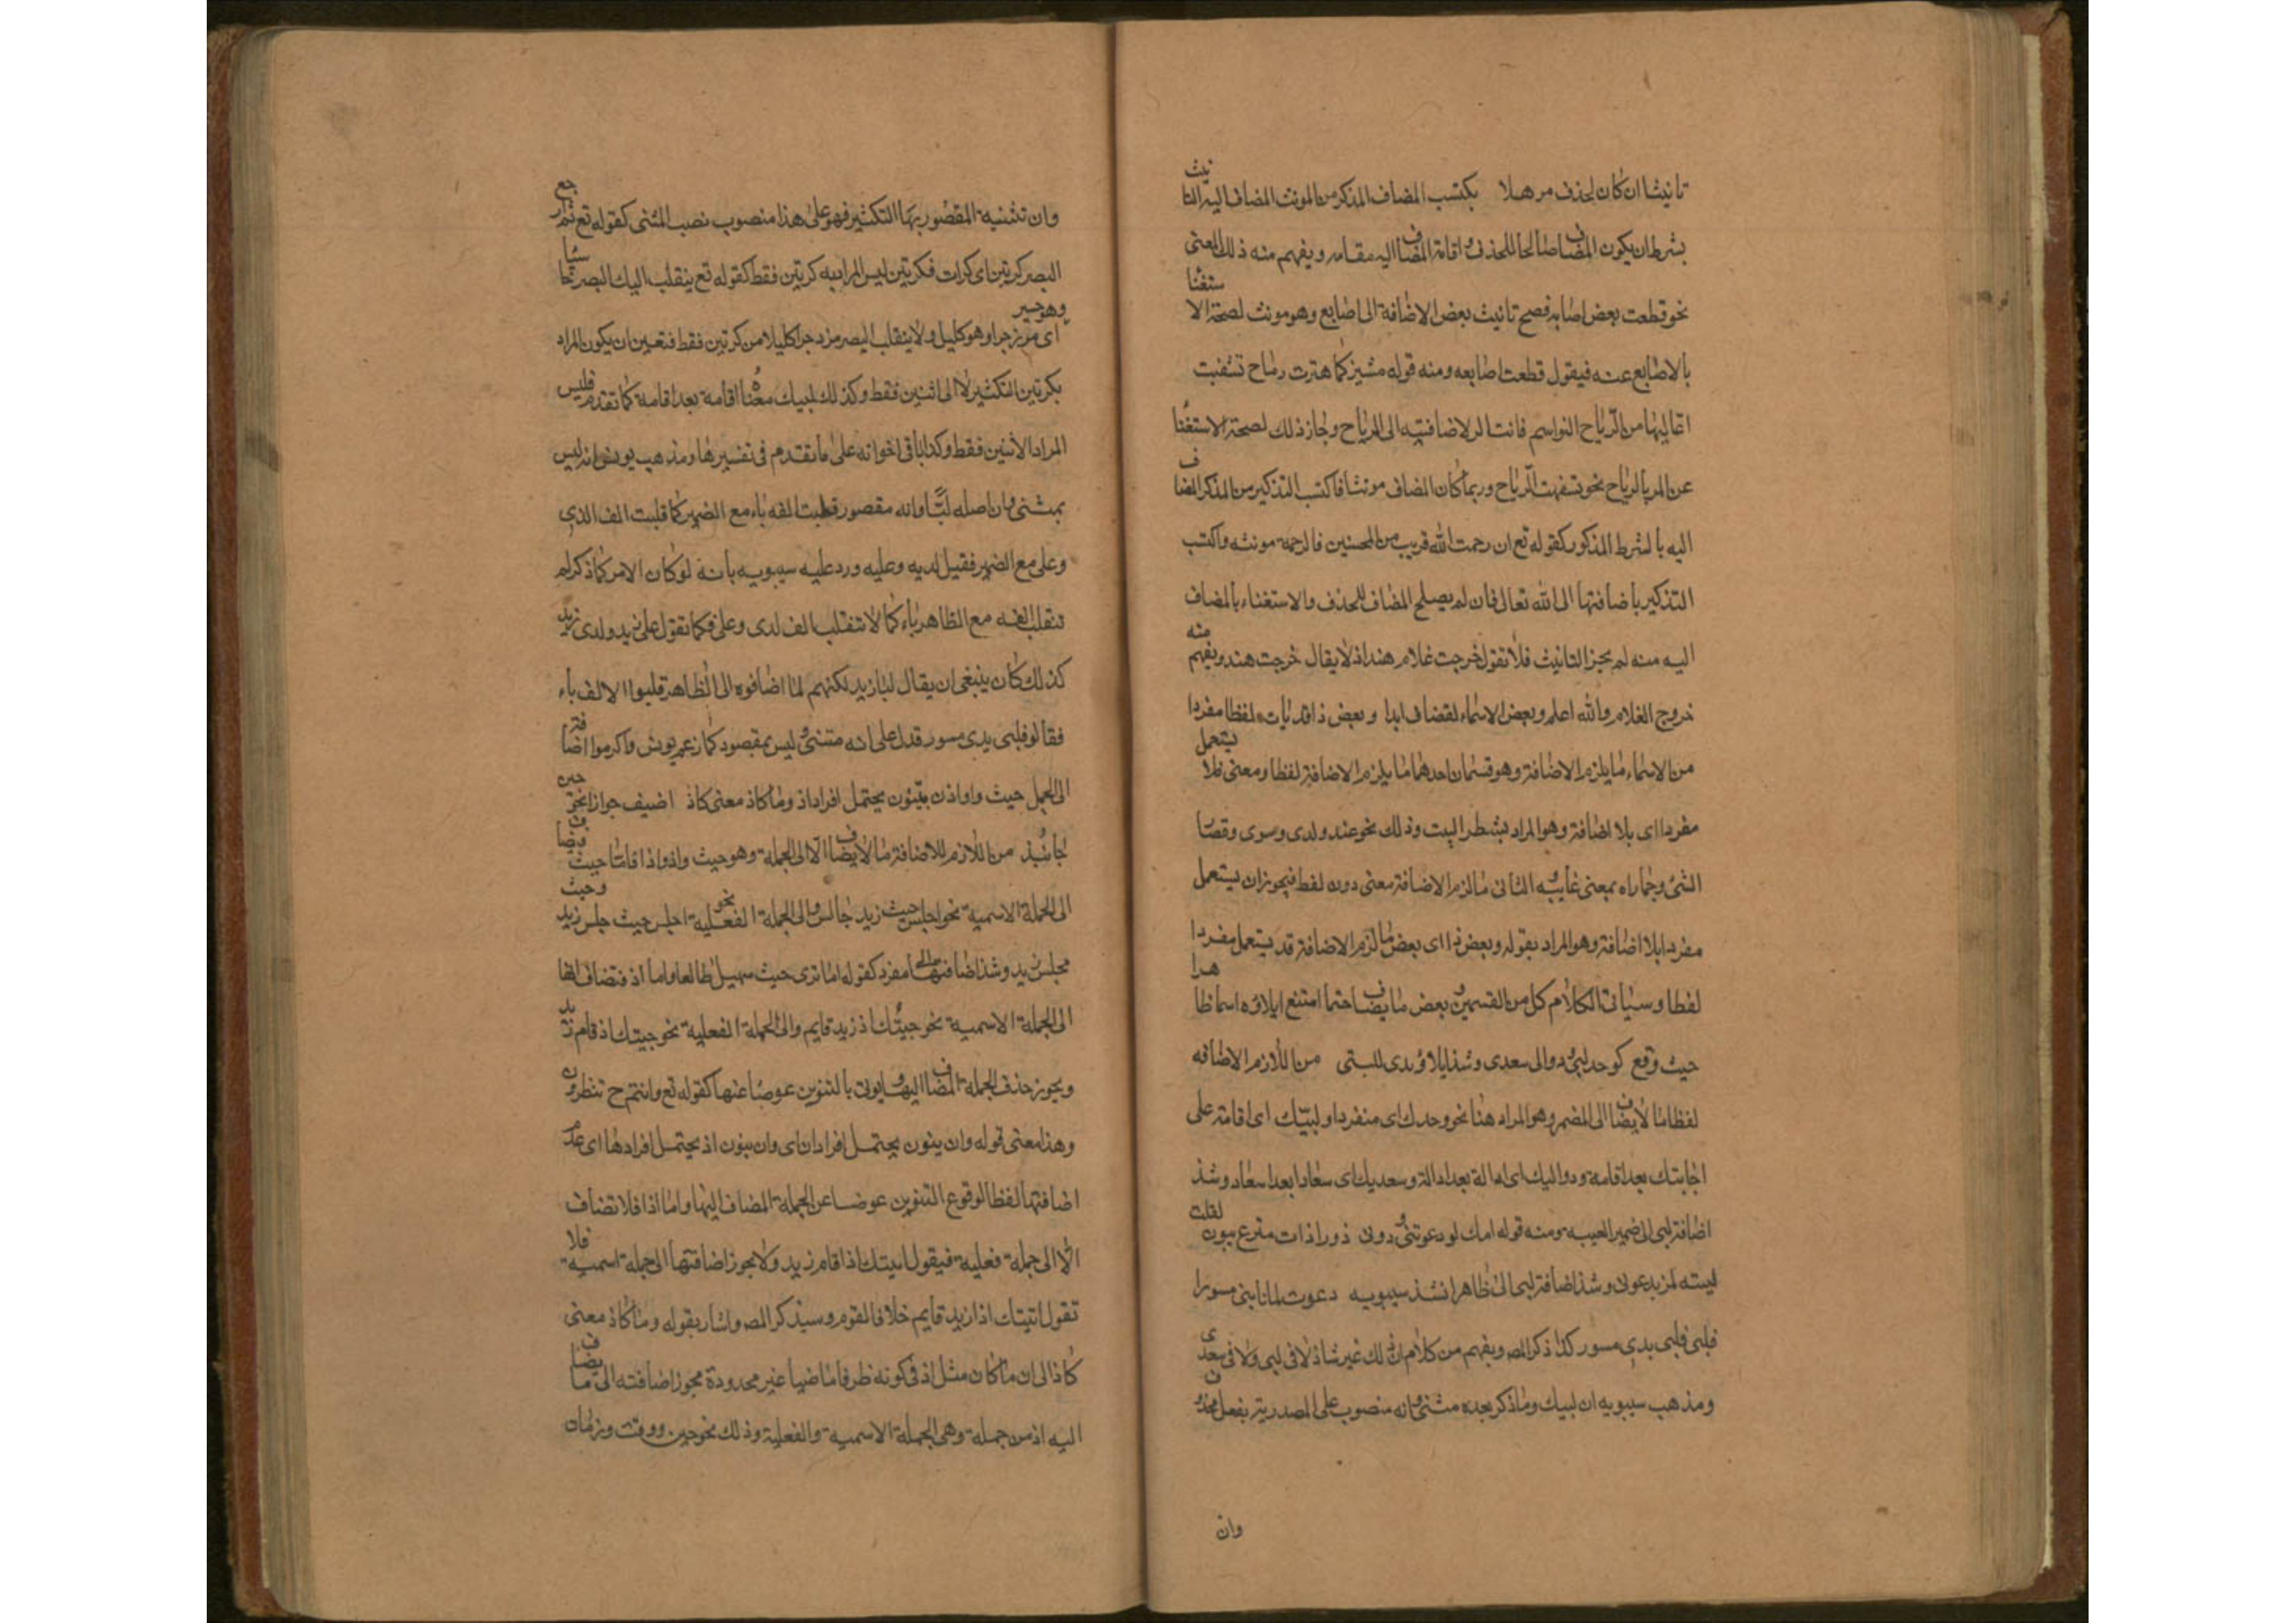 تانيثا ان كان لحذف مرهلا يكتسب المضاف المذكر من المونث المضاف اليه التانيث
بشرط ان يكون المضاف صالحا للحذف و اقامة المضاف اليه مقامه ويفهم منه ذلك المعنى
نحو قطعت بعض اصابعه فصح تانيث بعض الاضافة الى اصابع وهو مونث لصحة الاستغنا
بالاصابع عنه فيقول قطعت اصابعه ومنه قوله مشين كما هتزت رماح تسفهت
اعاليها من الرياح النواسم فانت المر لاضافتيه الى الرياح وجاز ذلك لصحة الاستغنا
عن المر بالرياح نحو تسفهت الرياح وربما كان المضاف مونثا فاكتسب التذكير من المذكر المضاف
اليه بالشرط المذكور كقوله تع ان رحمت الله قريب من المحسنين فالرحمة مونثه واكتسب
التذكير باضافتها الى الله تعالى فان لم يصلح المضاف للحذف والاستغناء بالمضاف
اليه منه لم يجز التانيث فلا تقول خرجت غلام هند اذ لا يقال خرجت هند ويفهم منه
خروج الغلام والله اعلم وبعض الاسماء يضاف ابدا و بعض ذا قد يات لفظا مفردا
من الاسماء ما يلزم الاضافة وهو قسمان احدهما ما يلزم الاضافة لفظا ومعنى فلا يستعمل
مفردا اى بلا اضافة وهو المراد بشطر البيت وذلك نحو عند ولدى وسوى وقصا
الشئ وحماراه بمعنى غايته و الثانى ما لزم الاضافة معنى دون لفظ فيجوز ان يستعمل
مفردا بلا اضافة وهو المراد بقوله وبعض ذا اى بعض ما لزم الاضافة قد يستعمل مفردا
لفظا وسياتى الكلام كل من القسمين و بعض ما يضاف حتما امتنع ايلاؤه اسما ظاهرا
حيث وقع كوحد لبى ودوالى سعدى وشذ ايلاؤ يدى للبى من اللازم الاضافه
لفظا ما لا يضاف الا الى المضمر وهو المراد هنا نحو وحدك اى منفردا و لبيك اى اقامة على
اجابتك بعد اقامة ودواليك اى ادالة بعد ادالة وسعديك اى سعادا بعد اسعاد وشذ
اضافة لبى الى ضمير الغيبه ومنه قوله انك لو دعوتنى و دونى ذورا ذات مترع بيون لقلت
لبيه لمن يدعونى وشذ اضافة لبى الى الظاهر انشد سيبويه دعوت لما نابنى مسورا
فلبى فلبى يدى مسور كذا ذكر المص ويفهم من كلام ان ذلك غير شاذ لا فى لبى ولا فى سعدى
ومذهب سيبويه ان لبيك وما ذكر بعده مثنى وانه منصوب على المصدرية بفعل محذوف
وان
وان تثنيه المقصور بها التكثير فهو على هذا منصوب نصب المثنى كقوله تع ثم ارجع
البصر كرتين اى كرات فكرتين ليس المراد به كرتين فقط كقوله تع ينقلب اليك البصر خاسئا
وهو حسير اى مزدجرا وهو كليل ولا ينقلب البصر مزدجرا كليلا من كرتين فقط فتعين ان يكون المراد
بكرتين التكثير لا الى اثنين فقط وكذلك لبيك معناه اقامة بعد اقامة كما تقدم فليس
المراد الاثنين فقط وكذا باقى اخواته على ما تقدم فى تفسيرها ومذهب يونس انه ليس
بمثنى وان اصله لبًّا وانه مقصور قلبت الفه ياء مع الضمير كما قلبت الف لدى
وعلى مع الضمير فقيل لديه وعليه ورد عليه سيبويه بانه لو كان الامر كما ذكر لم
تنقلب الفه مع الظاهر ياء كما لا تنقلب الف لدى وعلى فكما تقول على زيد ولدى زيد
كذلك كان ينبغى ان يقال لبا زيد لكنهم لما اضافوه الى الظاهر قلبوا الالف ياء
فقالو فلبى يدى مسور فدل على انه مثنى و ليس بمقصور كما زعم يونس والزموا اضافة
الى الجمل حيث واواذ ن ينون يحتمل افراد اذ وما كاذ معنى كاذ اضيف جوازا نحو حين
جا نبذ من اللازم للاضافة ما لا يضاف الا الى الجملة وهو حيث واذ واذا فاما حيث فيضاف
الى الجملة الاسمية نحو اجلس حيث زيد جالس و الى الجملة الفعلية نحو اجلس حيث جلس زيد وحيث
مجلس زيد وشذ اضافتها الى مفرد كقوله اما ترى حيث سهيل طالعا واما اذ فتضاف ايضا
الى الجملة الاسمية نحو جيتك اذ زيد قايم والى الجملة الفعلية نحو جيتك اذ قام زيد
ويجوز حذف الجملة المضاف اليها و يوتى بالتنوين عوضا عنها كقوله تع وانتم ح تنظرون
وهذا معنى قوله وان ينون يحتمل افراد اذ اى وان ينون اذ يحتمل افرادها اى عدم
اضافتها لفظا لوقوع التنوين عوضا عن الجملة المضاف اليها واما اذا فلا تضاف
الا الى جملة فعلية فيقول اتيتك اذا قام زيد ولا يجوز اضافتها الى جملة اسمية فلا
تقول اتيتك اذا زيد قايم خلافا لقوم وسيذكر المص واشار بقوله وما كاذ معنى
كاذ الى ان ما كان مثل اذ فى كونه ظرفا ماضيا غير محدودة يجوز اضافته الى ما يضاف
اليه اذ من جملة وهى الجملة الاسمية والفعلية وذلك نحو حين ووقت وزمان